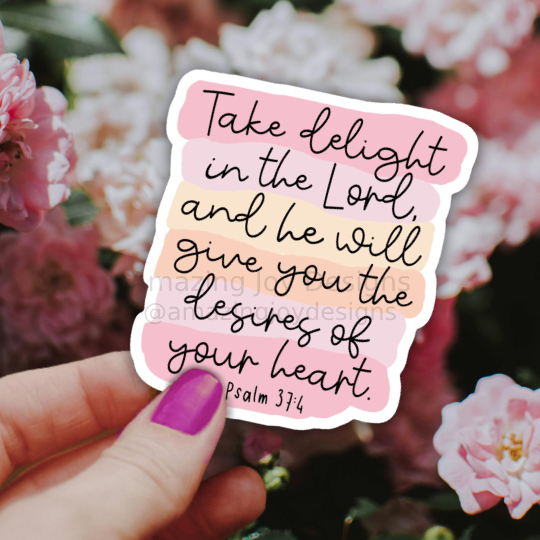 Take delight
in the Lord,
and he will
give you the
mazing Joy Designs
@amazingjoydesigns
desires of
your heart.
Psalm 37:4